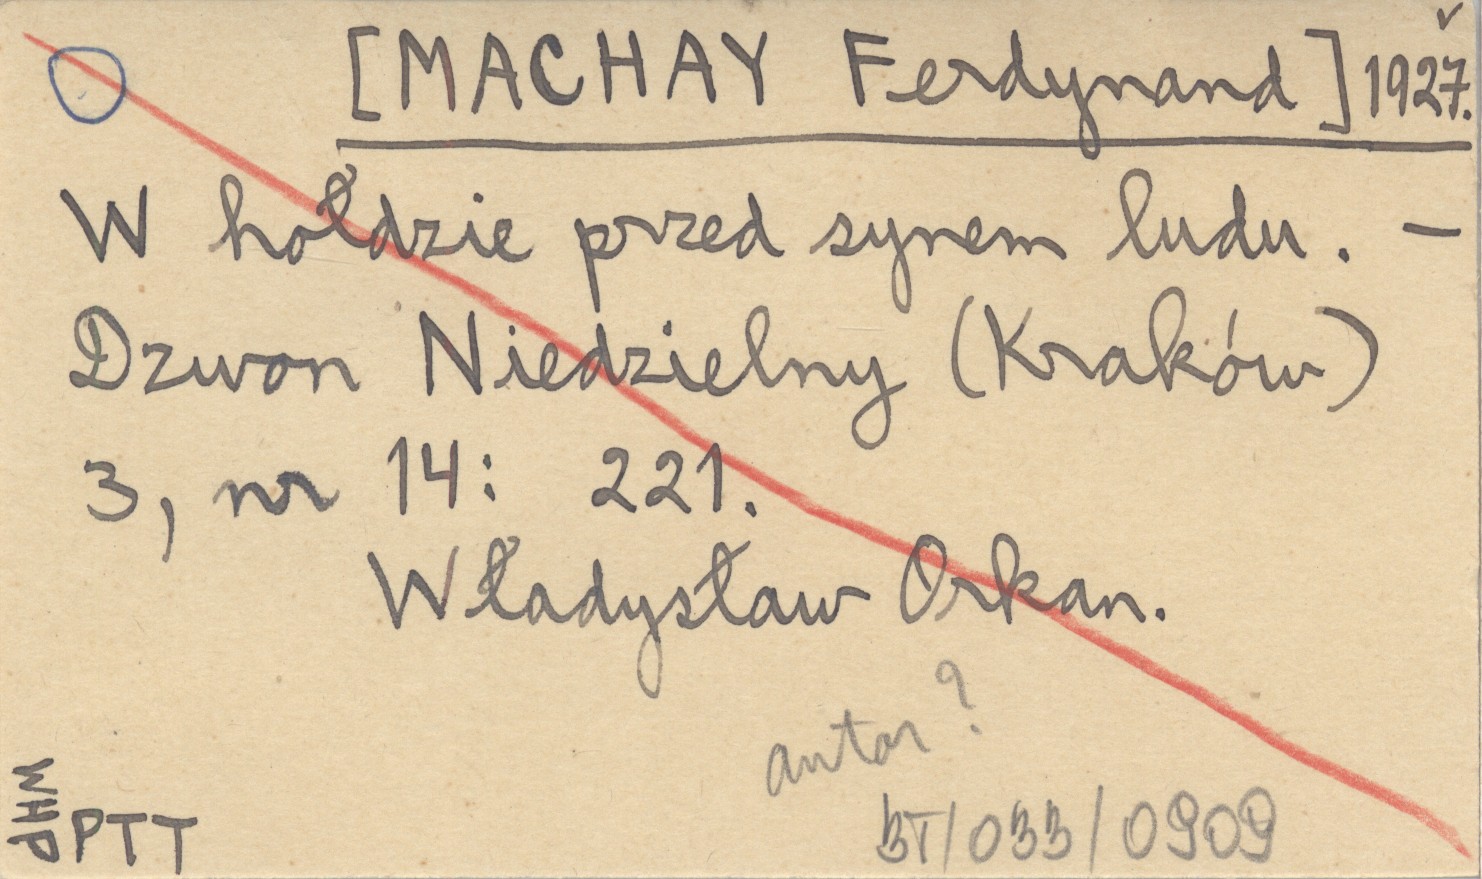 [MACHAY Ferdynand] 1927.
W hołdzie przed synem ludu. —
Dzwon Niedzielny (Kraków)
3, nr 14: 221.
Władysław Orkan.
autor?
BT/033/0909
WHP
PTT